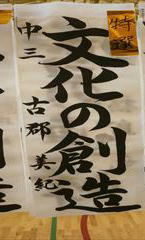 特選
文化の創造
中三 古郡美紀